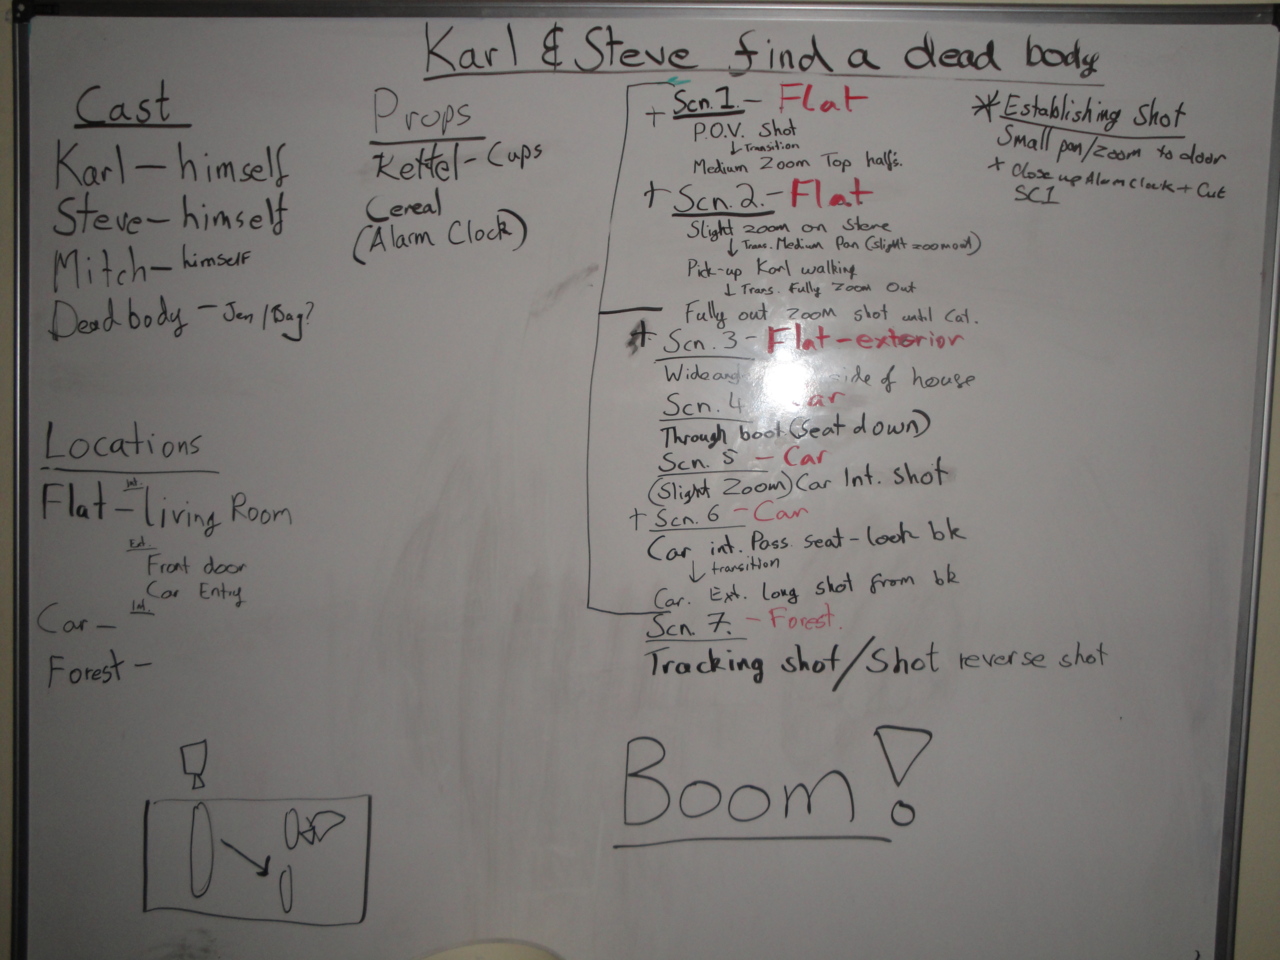 Karl & Steve find a dead body
Cast
Karl – himself
Steve – himself
Mitch – himself
Dead body – Jen / Bag?
Props
Kettel – Cups
Cereal
(Alarm Clock)
Locations
Flat – Int. Living Room
Ext.
Front door
Car Entry
Car – Int.
Forest –
+ Scn. 1. – Flat
P.O.V. Shot
↓ Transition
Medium Zoom Top halfs.
+ Scn. 2. – Flat
Slight zoom on Steve
↓ Trans. Medium Pan (slight zoom out)
Pick-up Karl walking
↓ Trans. Fully Zoom Out
Fully out zoom shot until Cat.
+ Scn. 3 – Flat – exterior
Wide side of house
Scn. 4 Car
Through boot (Seat down)
Scn. 5 – Car
(Slight Zoom) Car Int. Shot
+ Scn. 6 – Car
Car int. Pass. seat – look bk
↓ transition
Car. Ext. long shot from bk
Scn. 7. – Forest.
Tracking shot / Shot reverse shot
* Establishing Shot
Small pan/zoom to door
+ Close up Alarm Clock + Cut
SC1
Boom!